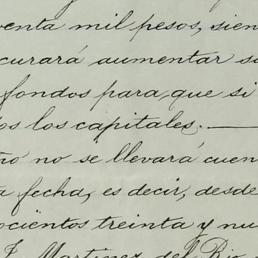 venta mil pesos, sien
curará aumentar su
fondos para, que si
os los capitales. —
ño no se llevará cuen
a fecha, es decir, desde
ocientos treinta y nu
F. Martinez del Rio